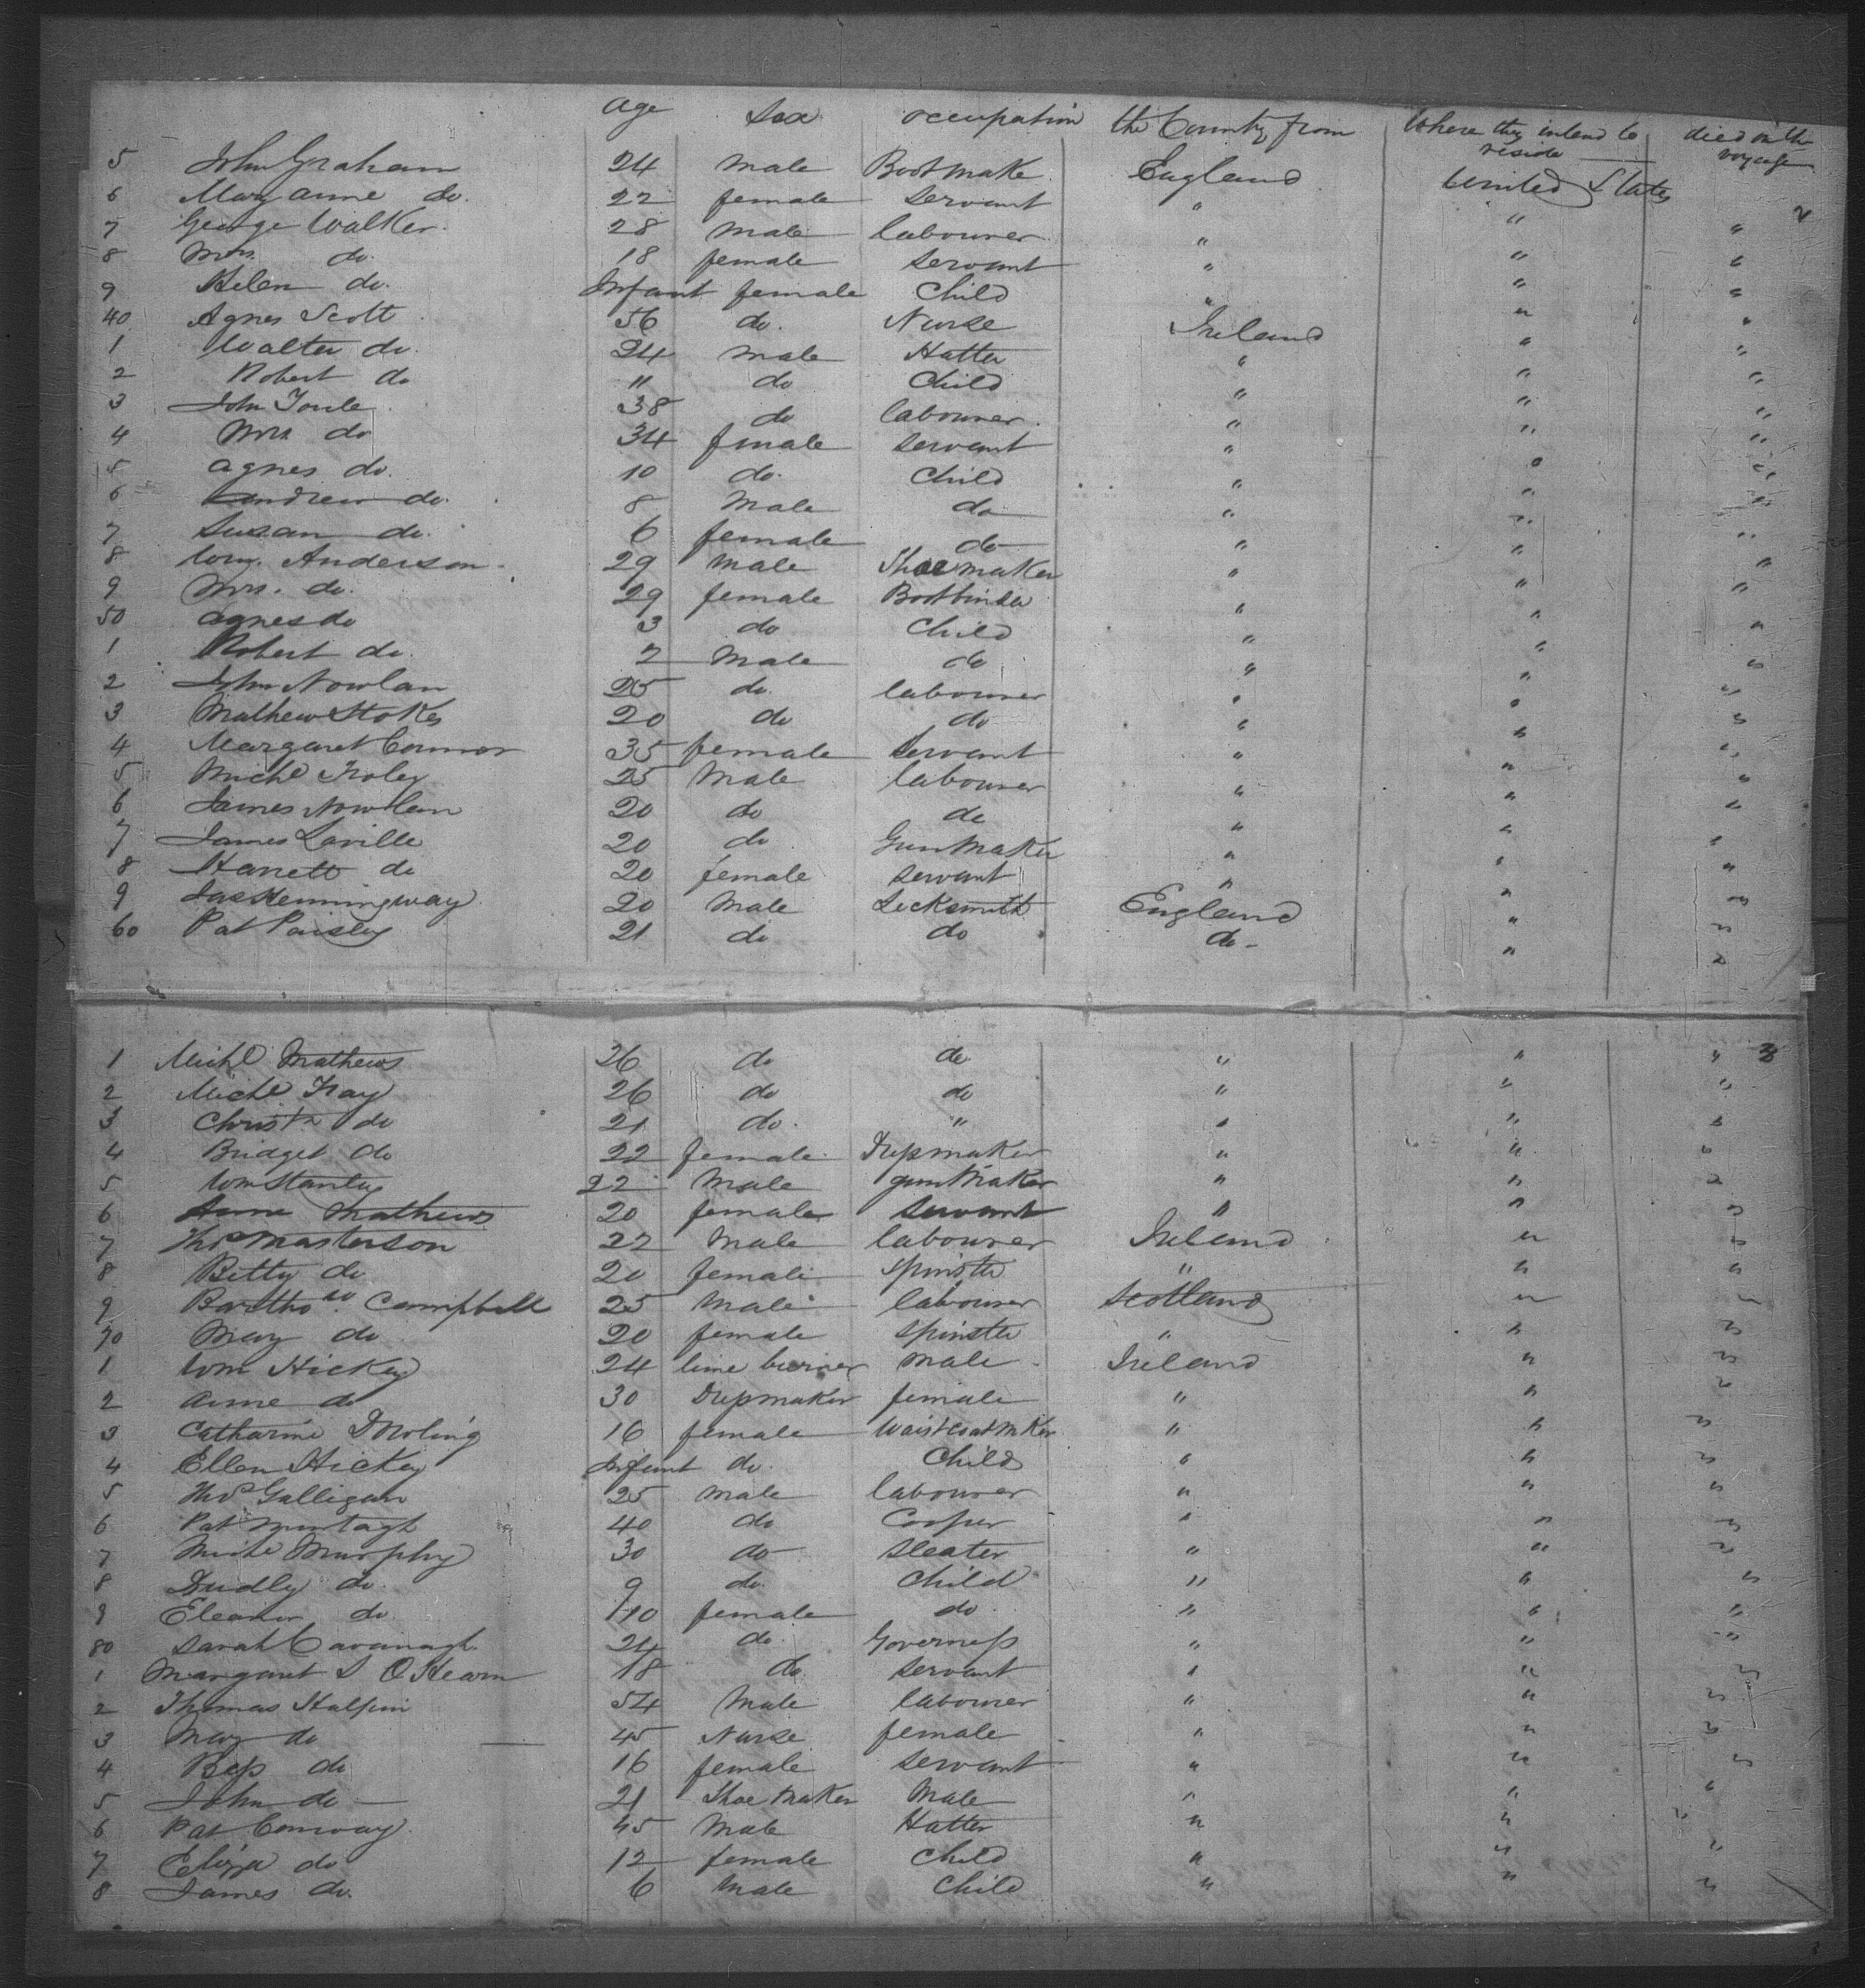 age sex occupation the County from Where they intend to reside died on the voyage
5 John Graham 24 male Bootmake England United States
6 Mary anne do. 22 female servant " " " 2
7 George Walker 28 male labourer " " "
8 Mrs. do. 18 female servant " " "
9 Helen do. Infant female Child " " "
40 Agnes Scott 56 do. Nurse Ireland " "
1 Walter do. 24 male Hatter " " "
2 Robert do 11 do Child " " "
3 John 38 do labourer " " "
4 Mrs do 34 female servant " " "
5 agnes do. 10 do. Child " " "
6 andrew do. 8 Male do " " "
7 Susan do. 6 female do " " "
8 Wm. Anderson 29 male Shoemaker " " "
9 Mrs. do. 29 female Bootbinder " " "
50 agnes do 3 do Child " " "
1 Robert do. 2 Male do " " "
2 John Nowlan 25 do. labourer " " "
3 Mathew Stokes 20 do do " " "
4 Margaret Connor 35 female servant " " "
5 Michl Foley 25 Male labourer " " "
6 James Nowlan 20 do do " " "
7 James Laville 20 do Gun Maker " " "
8 Harrett do 20 female servant " " "
9 Jas Hemmingway 20 Male Locksmith England " "
60 Pat Paisley 21 do do do - " "
1 Michl Mathews 26 do do " " " 3
2 Michl Fray 26 do do " " "
3 Christr do 21 do. " " " "
4 Bridget do 22 female Dressmaker " " "
5 Wm Stanley 22 Male gun Maker " " "
6 Anne Mathews 20 female servant " " "
7 Thos Masterson 22 Male labourer Ireland " "
8 Betty do 20 female spinster " " "
9 Bartho Campbell 25 Male labourer Scotland " "
70 Mary do 20 female spinster " " "
1 Wm Hickey 24 lime burner male Ireland " "
2 anne do 30 Dressmaker female " " "
3 Catharine Dowling 16 female Waistcoat mker " " "
4 Ellen Hickey Infant do. Child " " "
5 Thos Galligan 25 male labourer " " "
6 Pat Murtagh 40 do Cooper " " "
7 Michl Murphy 30 do Sleater " " "
8 Dudly do. 9 do. Child " " "
9 Eleanor do. 10 female do. " " "
80 Sarah Cavanagh 24 do. Governess " " "
1 Margaret O Hearn 18 do. servant " " "
2 Thomas Halpin 54 Male labourer " " "
3 Mary do 45 Nurse female " " "
4 Bess do 16 female servant " " "
5 John do 21 Shoe Maker Male " " "
6 Pat Conway 45 Male Hatter " " "
7 Eliza do 12 female Child " " "
8 James do. 6 Male Child " " "